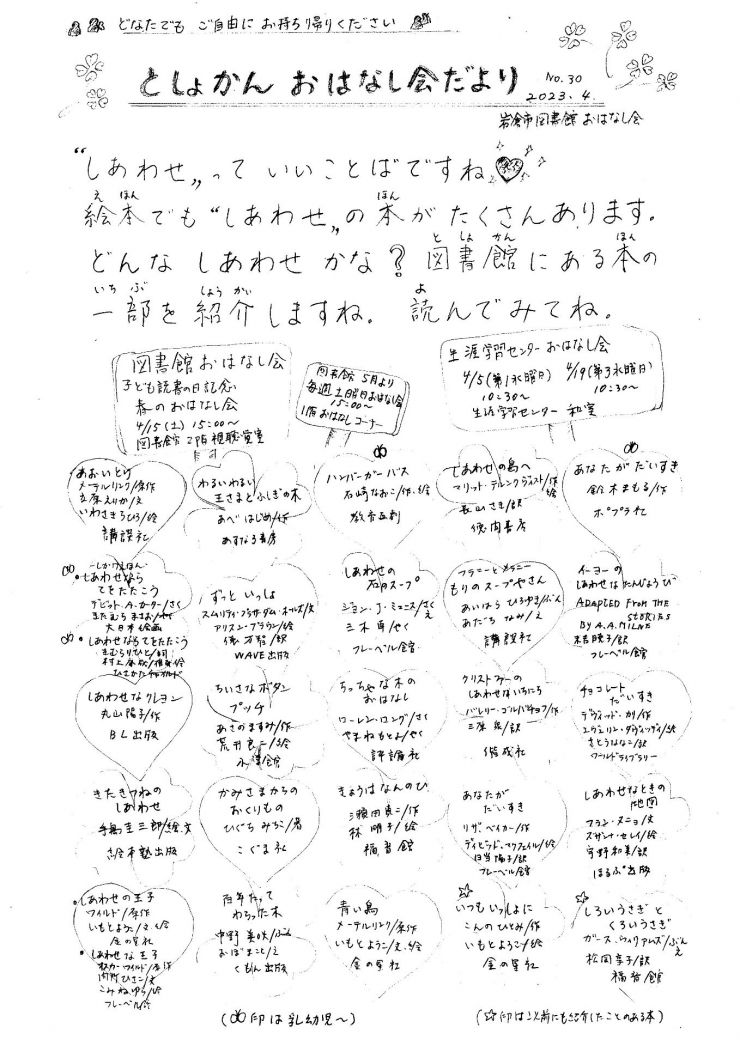 どなたでも ご自由に お持ち帰りください
としょかん おはなし会だより
No.30
2023.4.
岩倉市図書館 おはなし会
“しあわせ„って いいことばですね
絵本でも“しあわせ„の本が たくさんあります。
どんな しあわせ かな？ 図書館にある本の
一部を 紹介しますね。 読んでみてね。
図書館おはなし会
子ども読書の日記念
春のおはなし会
4/15(土) 15:00〜
図書館 2階 視聴覚室
図書館 5月より
毎週土曜日おはなし会
15:00〜
1階おはなしコーナー
生涯学習センター おはなし会
4/5(第1水曜日) 4/19(第3水曜日)
10:30〜 10:30〜
生涯学習センター 和室
あおいとり
メーテルリンク/原作
立原えりか/え
いわさきちひろ/絵
講談社
わるいわるい
王さまとふしぎの木
あべ はじめ/作
あすなろ書房
ハンバーガーバス
石崎なおこ/作・絵
教育画劇
しあわせの島へ
マリット・テルンクヴィスト/作絵
長山さき/訳
徳間書店
あなたがだいすき
鈴木まもる/作
ポプラ社
-しかけえほん-
・しあわせなら
てをたたこう
デビット・A・カーター/さく
きたむら まさお/やく
大日本絵画
・しあわせなら てをたたこう
きむらりひと/詞
ひさかたチャイルド
ずっと いっしょ
アリスン・ブラウン/絵
俵万智/訳
WAVE出版
しあわせの
石のスープ
ジョン・J・ミュース/さくえ
三木卓/やく
フレーベル館
ファニーとメラニー
もりのスープやさん
あいはら ひろゆき/ぶん
あだち なみ/え
講談社
イーヨーの
しあわせなたんじょうび
ADAPTED FROM THE
STORIES
BY A.A.MILNE
フレーベル館
しあわせなクレヨン
丸山陽子/作
BL出版
ちいさなボタン
プッチ
あさのますみ/作
荒井良二/絵
小学館
ちっちゃな木の
おはなし
ローレン・ロング/さく
やまねもとよ/やく
評論社
クリストファーの
しあわせないちにち
バレリー・ゴルバチョフ/作
三原泉/訳
偕成社
チョコレート
だいすき
デヴィッド・カリ/作
エヴェリン・ダヴィッディ/絵
さとうななこ/訳
ワールドライブラリー
きたきつねの
しあわせ
手島圭三郎/絵・文
絵本塾出版
かみさまからの
おくりもの
ひぐち みちこ/著
こぐま社
きょうはなんのひ
瀬田貞二/作
林明子/絵
福音館
あなたが
だいすき
リサ・ベイカー/作
デイヴィッド・マクフェイル/絵
日当陽子/訳
フレーベル館
しあわせなときの
地図
フラン・ヌニョ/文
ズザンナ・セレイ/絵
宇野和美/訳
ほるぷ出版
・しあわせの王子
ワイルド/原作
いもとようこ/文・絵
金の星社
・しあわせな王子
オスカー・ワイルド/原作
こみねゆら/絵
フレーベル館
百年たって
わらった木
中野美咲/ぶん
おぼまこと/え
くもん出版
青い鳥
メーテルリンク/原作
いもとようこ/文・絵
金の星社
いつもいっしょに
こんのひとみ/作
いもとようこ/絵
金の星社
しろいうさぎと
くろいうさぎ
ガース・ウィリアムズ/ぶんえ
松岡享子/訳
福音館
(印は乳幼児〜)
(☆印は以前にも紹介したことのある本)